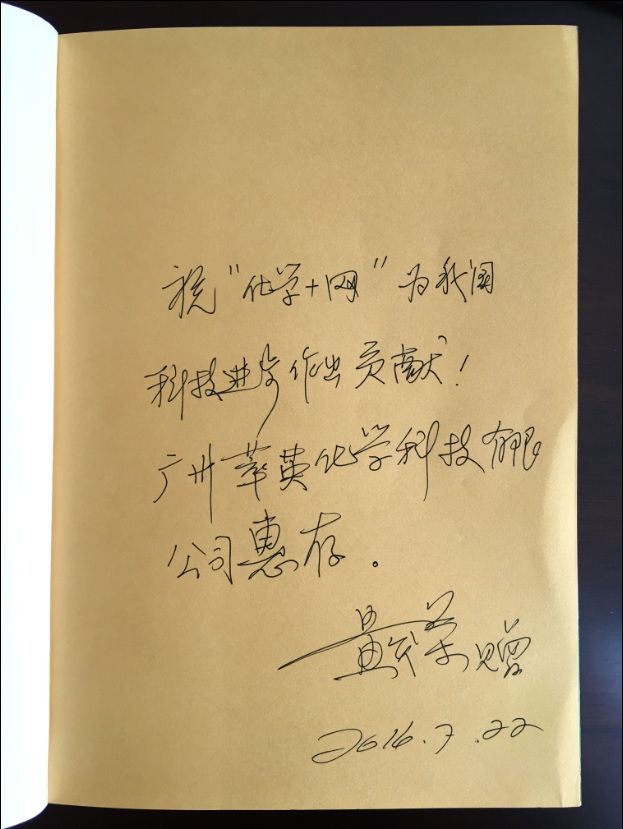 祝"化学+网"为我国
科技进步作出贡献！
广州萃英化学科技有限
公司惠存。
赠
2016.7.22